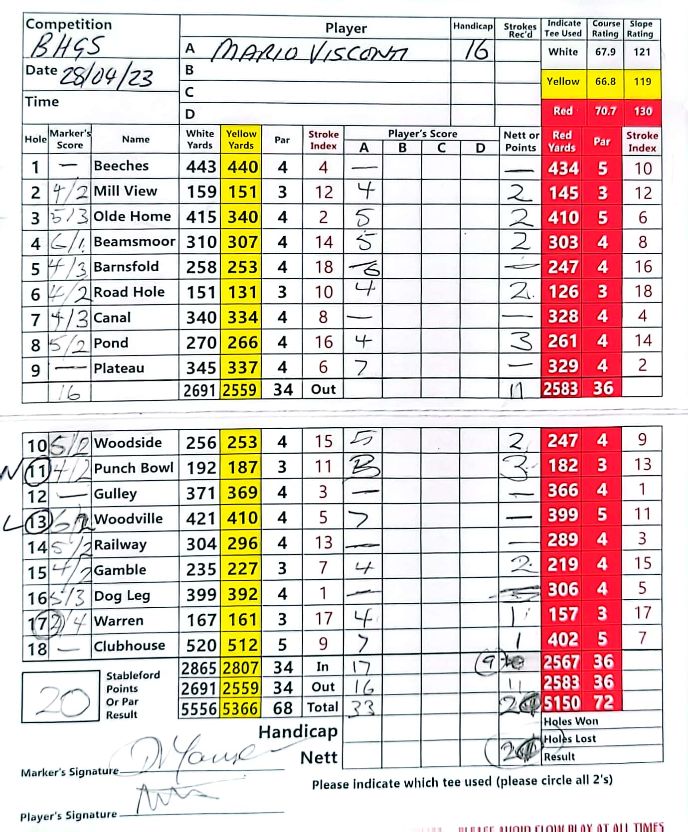 Competition BHGS Player Handicap Strokes Rec'd Indicate Tee Used Course Rating Slope Rating
A MARIO VISCONTI 16 White 67.9 121
Date 28/04/23 B Yellow 66.8 119
Time C
D Red 70.7 130
Hole Marker's Score Name White Yards Yellow Yards Par Stroke Index Player's Score A B C D Nett or Points Red Yards Par Stroke Index
1 — Beeches 443 440 4 4 — — 434 5 10
2 4/2 Mill View 159 151 3 12 4 2 145 3 12
3 5/3 Olde Home 415 340 4 2 5 2 410 5 6
4 6/1 Beamsmoor 310 307 4 14 5 2 303 4 8
5 4/3 Barnsfold 258 253 4 18 6 — 247 4 16
6 4/2 Road Hole 151 131 3 10 4 2 126 3 18
7 4/3 Canal 340 334 4 8 — — 328 4 4
8 5/2 Pond 270 266 4 16 4 3 261 4 14
9 — Plateau 345 337 4 6 7 — 329 4 2
16 2691 2559 34 Out 11 2583 36
10 5/2 Woodside 256 253 4 15 5 2 247 4 9
N 11 4/2 Punch Bowl 192 187 3 11 3 3 182 3 13
12 — Gulley 371 369 4 3 — — 366 4 1
L 13 Woodville 421 410 4 5 7 — 399 5 11
14 5/2 Railway 304 296 4 13 — — 289 4 3
15 4/2 Gamble 235 227 3 7 4 2 219 4 15
16 5/3 Dog Leg 399 392 4 1 — 306 4 5
17 2/4 Warren 167 161 3 17 4 1 157 3 17
18 — Clubhouse 520 512 5 9 7 1 402 5 7
20 Stableford Points Or Par Result 2865 2807 34 In 17 9 2567 36
2691 2559 34 Out 16 11 2583 36
5556 5366 68 Total 33 5150 72
Handicap Holes Won
Holes Lost
Nett Result
Marker's Signature
Please indicate which tee used (please circle all 2's)
Player's Signature
PLEASE AVOID SLOW PLAY AT ALL TIMES